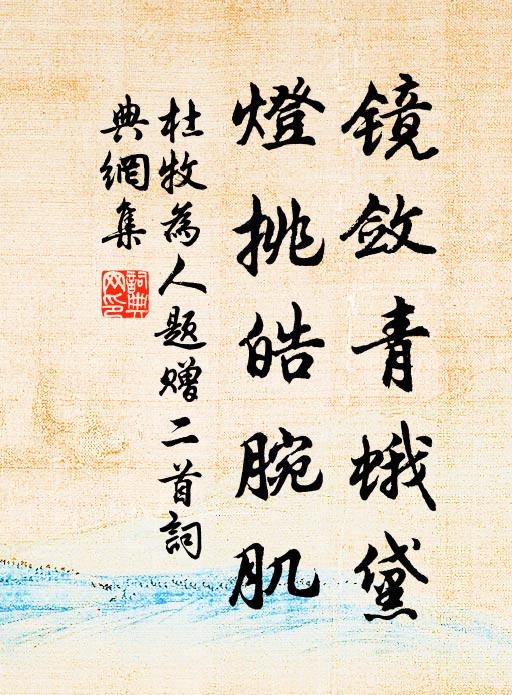 镜敛青蛾黛
燈挑皓腕肌
杜牧為人题贈二首詞
典網集
詞典網印